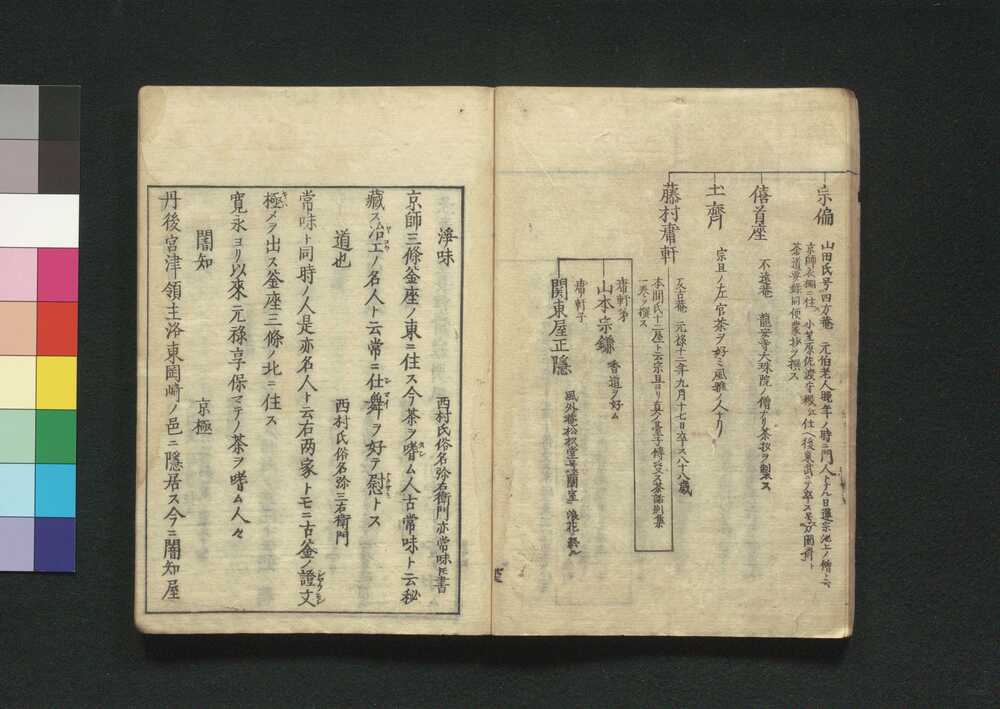 宗偏
山田氏号四方菴 元伯老人晩年ノ時ニ門人トナル日蓮宗池上ノ僧
京師衣棚ニ住ス小笠原佐渡守殿江仕ヘ後東武ニテ卒ス
茶道要録同便蒙抄ヲ撰ス
僖首座
不遠庵 龍安寺大珠院ノ僧ナリ茶杓ヲ製ス
土齊
宗旦ノ左官茶ヲ好ミ風雅ノ人ナリ
藤村庸軒
反古菴 元禄十二年九月十七日卒ス八十八歳
本間氏十二屋ト云宗旦ヨリ真ノ臺子傳授ス又茶話別集
一巻ヲ撰ス
庸軒弟
山本宗鎌 香道ヲ好ム
庸軒子
関東屋正隠
風外菴松根堂 蘭室 浪花ニ終ル
淨味
西村氏俗名弥右衛門亦常味トモ書
京師三條釜座ノ東ニ住ス今茶ヲ嗜ム人古常味ト云秘
藏ス冶工ノ名人ト云常ニ仕舞ヲ好テ慰トス
道也
西村氏俗名弥三右衛門
常味ト同時ノ人是亦名人ト云右両家トモニ古釜ノ證文
極メヲ出ス釜座三條ノ北ニ住ス
寛永ヨリ以來元禄享保マテノ茶ヲ嗜ム人々
闇知
京極
丹後宮津領主洛東岡崎ノ邑ニ隠居ス今ニ闇知屋